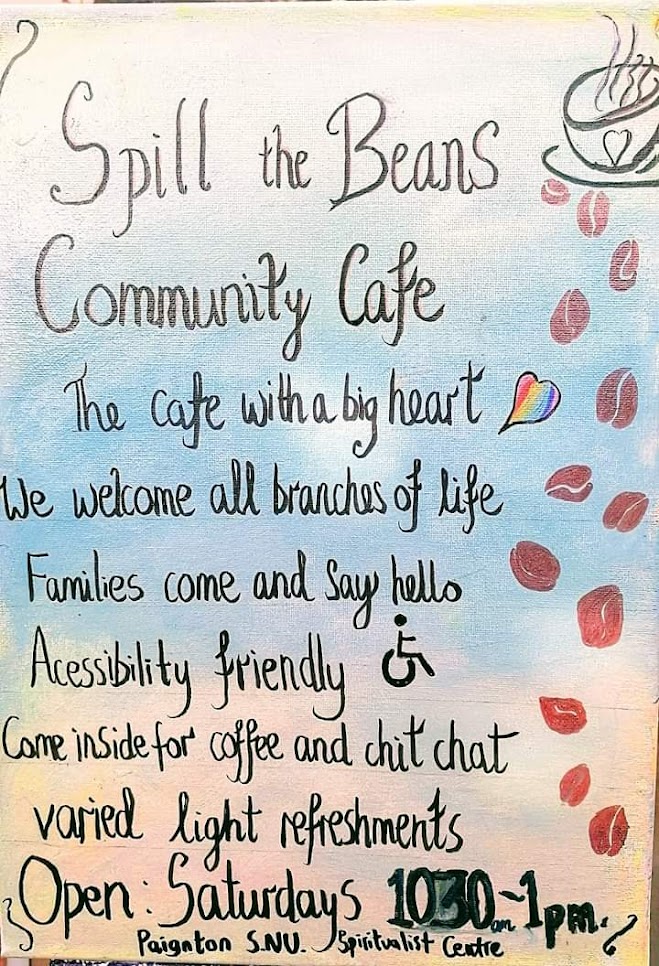 Spill the Beans
Community Cafe
The cafe with a big heart
We welcome all branches of life
Families come and say hello
Acessibility friendly
Come inside for coffee and chit chat
varied light refreshments
Open: Saturdays 1030am~1pm.
Paignton S.N.U. Spiritualist Centre